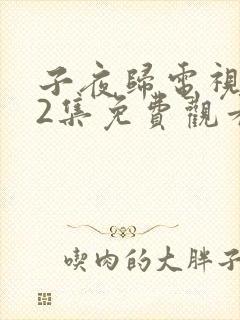 子夜歸電視
2集免費觀
喫肉的大胖子